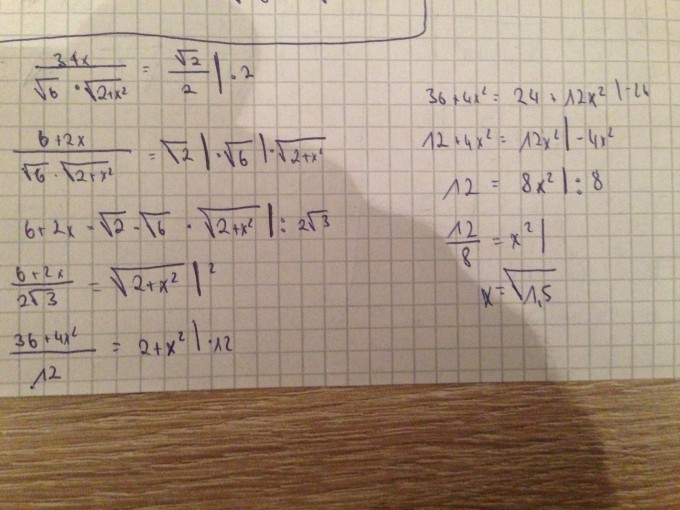 3+x / √6 · √2+x² = √2 / 2 | · 2
6+2x / √6 · √2+x² = √2 | · √6 | · √2+x²
6+2x = √2 · √6 · √2+x² | : 2√3
6+2x / 2√3 = √2+x² | ²
36+4x² / 12 = 2+x² | · 12
36+4x² = 24 + 12x² | -24
12+4x² = 12x² | -4x²
12 = 8x² | : 8
12 / 8 = x² |
x = √1,5